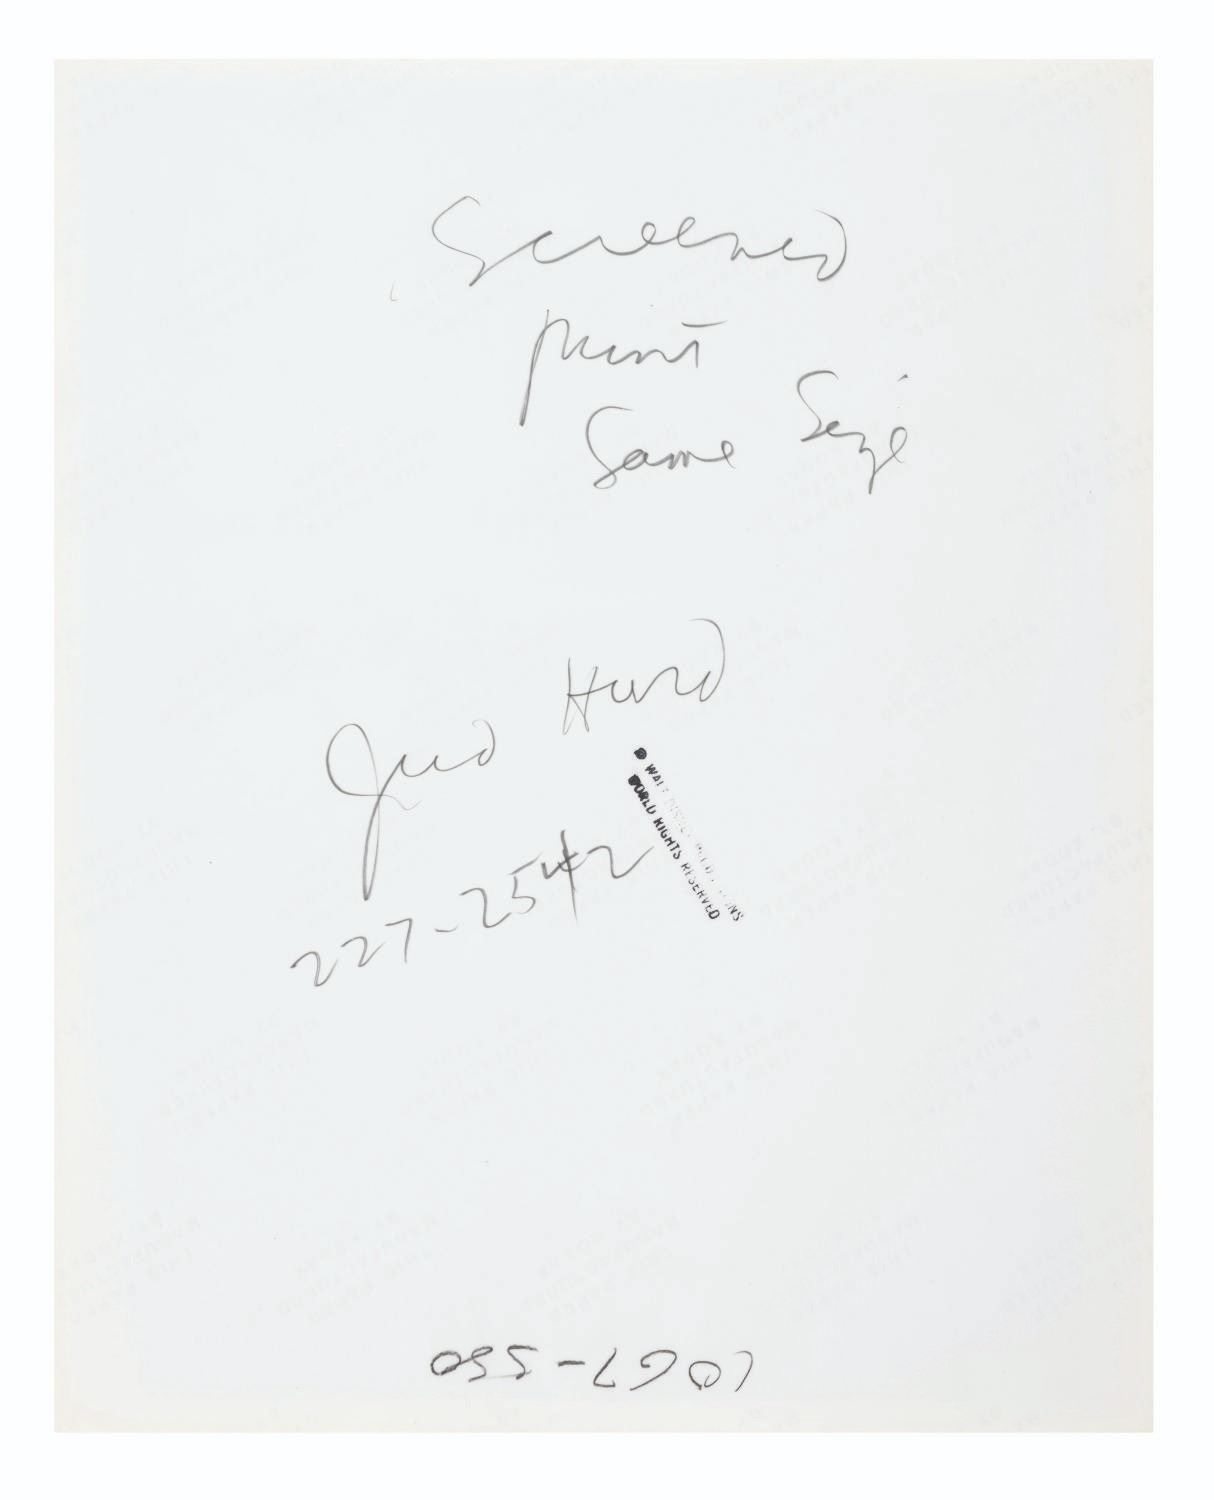 Screened
print
Same Size
Jud Hurd
227-2542
© WALT DISNEY PRODUCTIONS
WORLD RIGHTS RESERVED